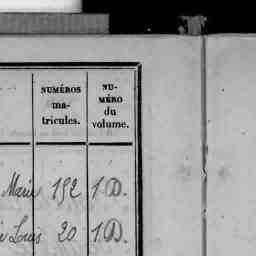 NUMÉROS
ma-
tricules.
NU-
MÉRO
du
volume.
Marie 192 1.D.
Louis 20 1.D.